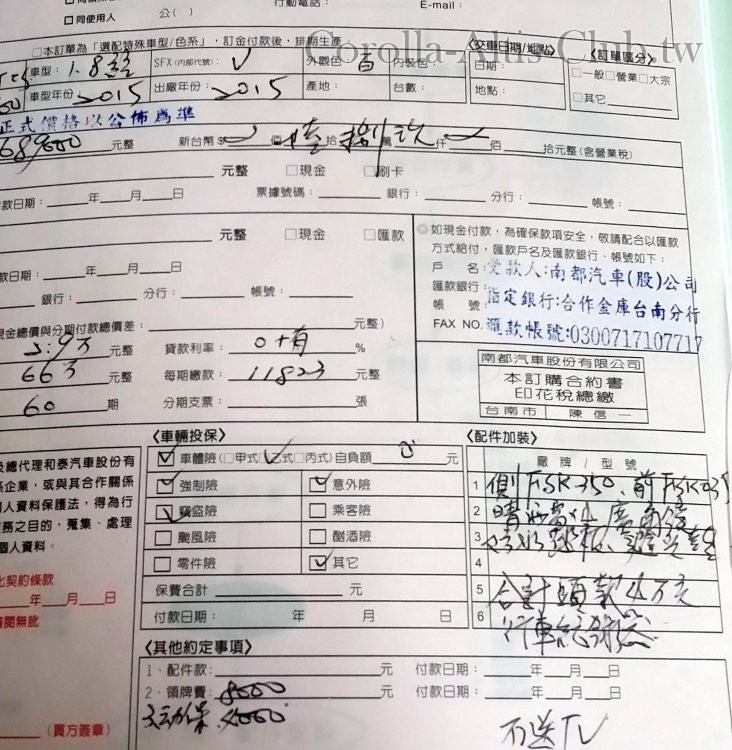 行動電話：
E-mail：
□同使用人
公（ ）
□本訂單為「選配特殊車型/色系」，訂金付款後，排期生產
Corolla-Altis Club.tw
〈交車日期/地點〉
〈訂單區分〉
車型：1.8
SFX(內部代號)：
外觀色：白
內裝色：
日期：
□一般□營業□大宗
車型年份 2015
出廠年份：2015
產地：
台數：
地點：
□其它
正式價格以公佈為準
689000 元整
新台幣$ 佰 陸拾 捌萬 玖仟 佰 拾元整(含營業稅)
元整 □現金 □刷卡
款日期： 年 月 日
票據號碼： 銀行： 分行： 帳號：
元整 □現金 □匯款
款日期： 年 月 日
銀行： 分行： 帳號：
◎如現金付款，為確保款項安全，敬請配合以匯款
方式給付，匯款戶名及匯款銀行、帳號如下：
戶 名：受款人：南都汽車(股)公司
匯款銀行：指定銀行：合作金庫台南分行
帳 號
FAX NO. 匯款帳號：0300717107717
現金總價與分期付款總價差： 元整）
元整 貸款利率： %
66万 元整 每期繳款： 11823 元整
60 期 分期支票： 張
南都汽車股份有限公司
本訂購合約書
印花稅總繳
台南市 陳信一
〈車輛投保〉
☑車體險(□甲式☑乙式□丙式)自負額 0 元
☑強制險 ☑意外險
☑竊盜險 □乘客險
□颱風險 □酗酒險
□零件險 ☑其它
保費合計 元
付款日期： 年 月 日
〈配件加裝〉
廠牌/型號
1 側FSK350、前FSK
2 晴雨窗
3
4
5 合計頭款4万元
6 行車紀錄器
及總代理和泰汽車股份有
係企業，或與其合作關係
個人資料保護法，得為行
務之目的，蒐集、處理
個人資料。
契約條款
年 月 日
（買方簽章）
〈其他約定事項〉
1、配件款： 元 付款日期： 年 月 日
2、領牌費：8000 元 付款日期： 年 月 日
不送TV